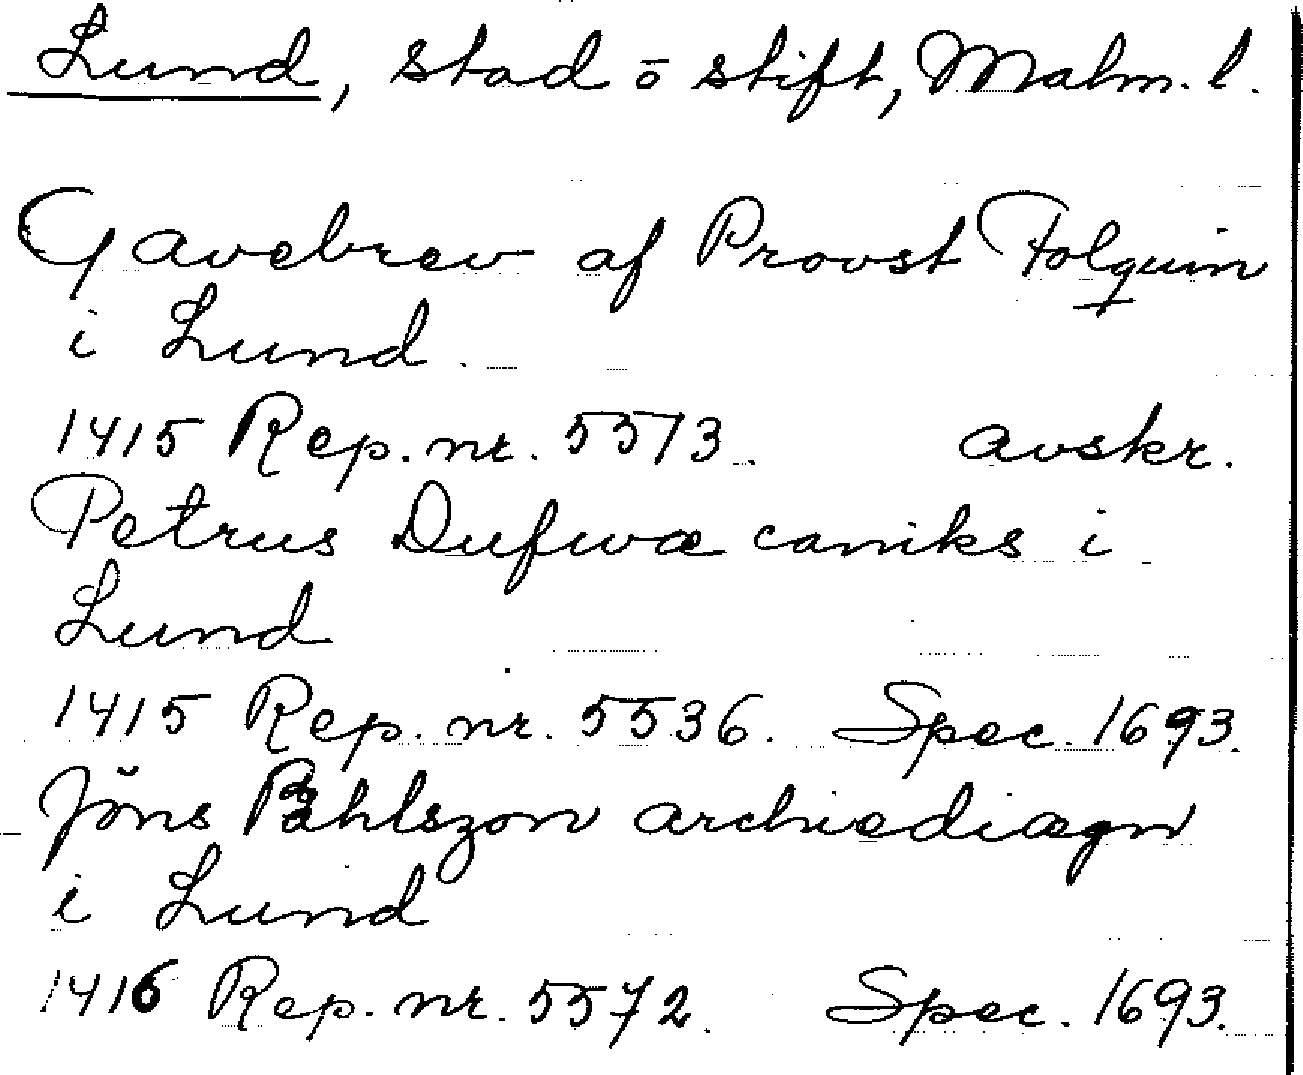 Lund, stad ō stift, Malm. l.
Gavebrev af Provst Folquin
i Lund.
1415 Rep. nr. 5573. avskr.
Petrus Dufwæ caniks i
Lund
1415 Rep. nr. 5536. Spec. 1693.
Jŏns Påhlszon archiediægn
i Lund
1416 Rep. nr. 5572. Spec. 1693.